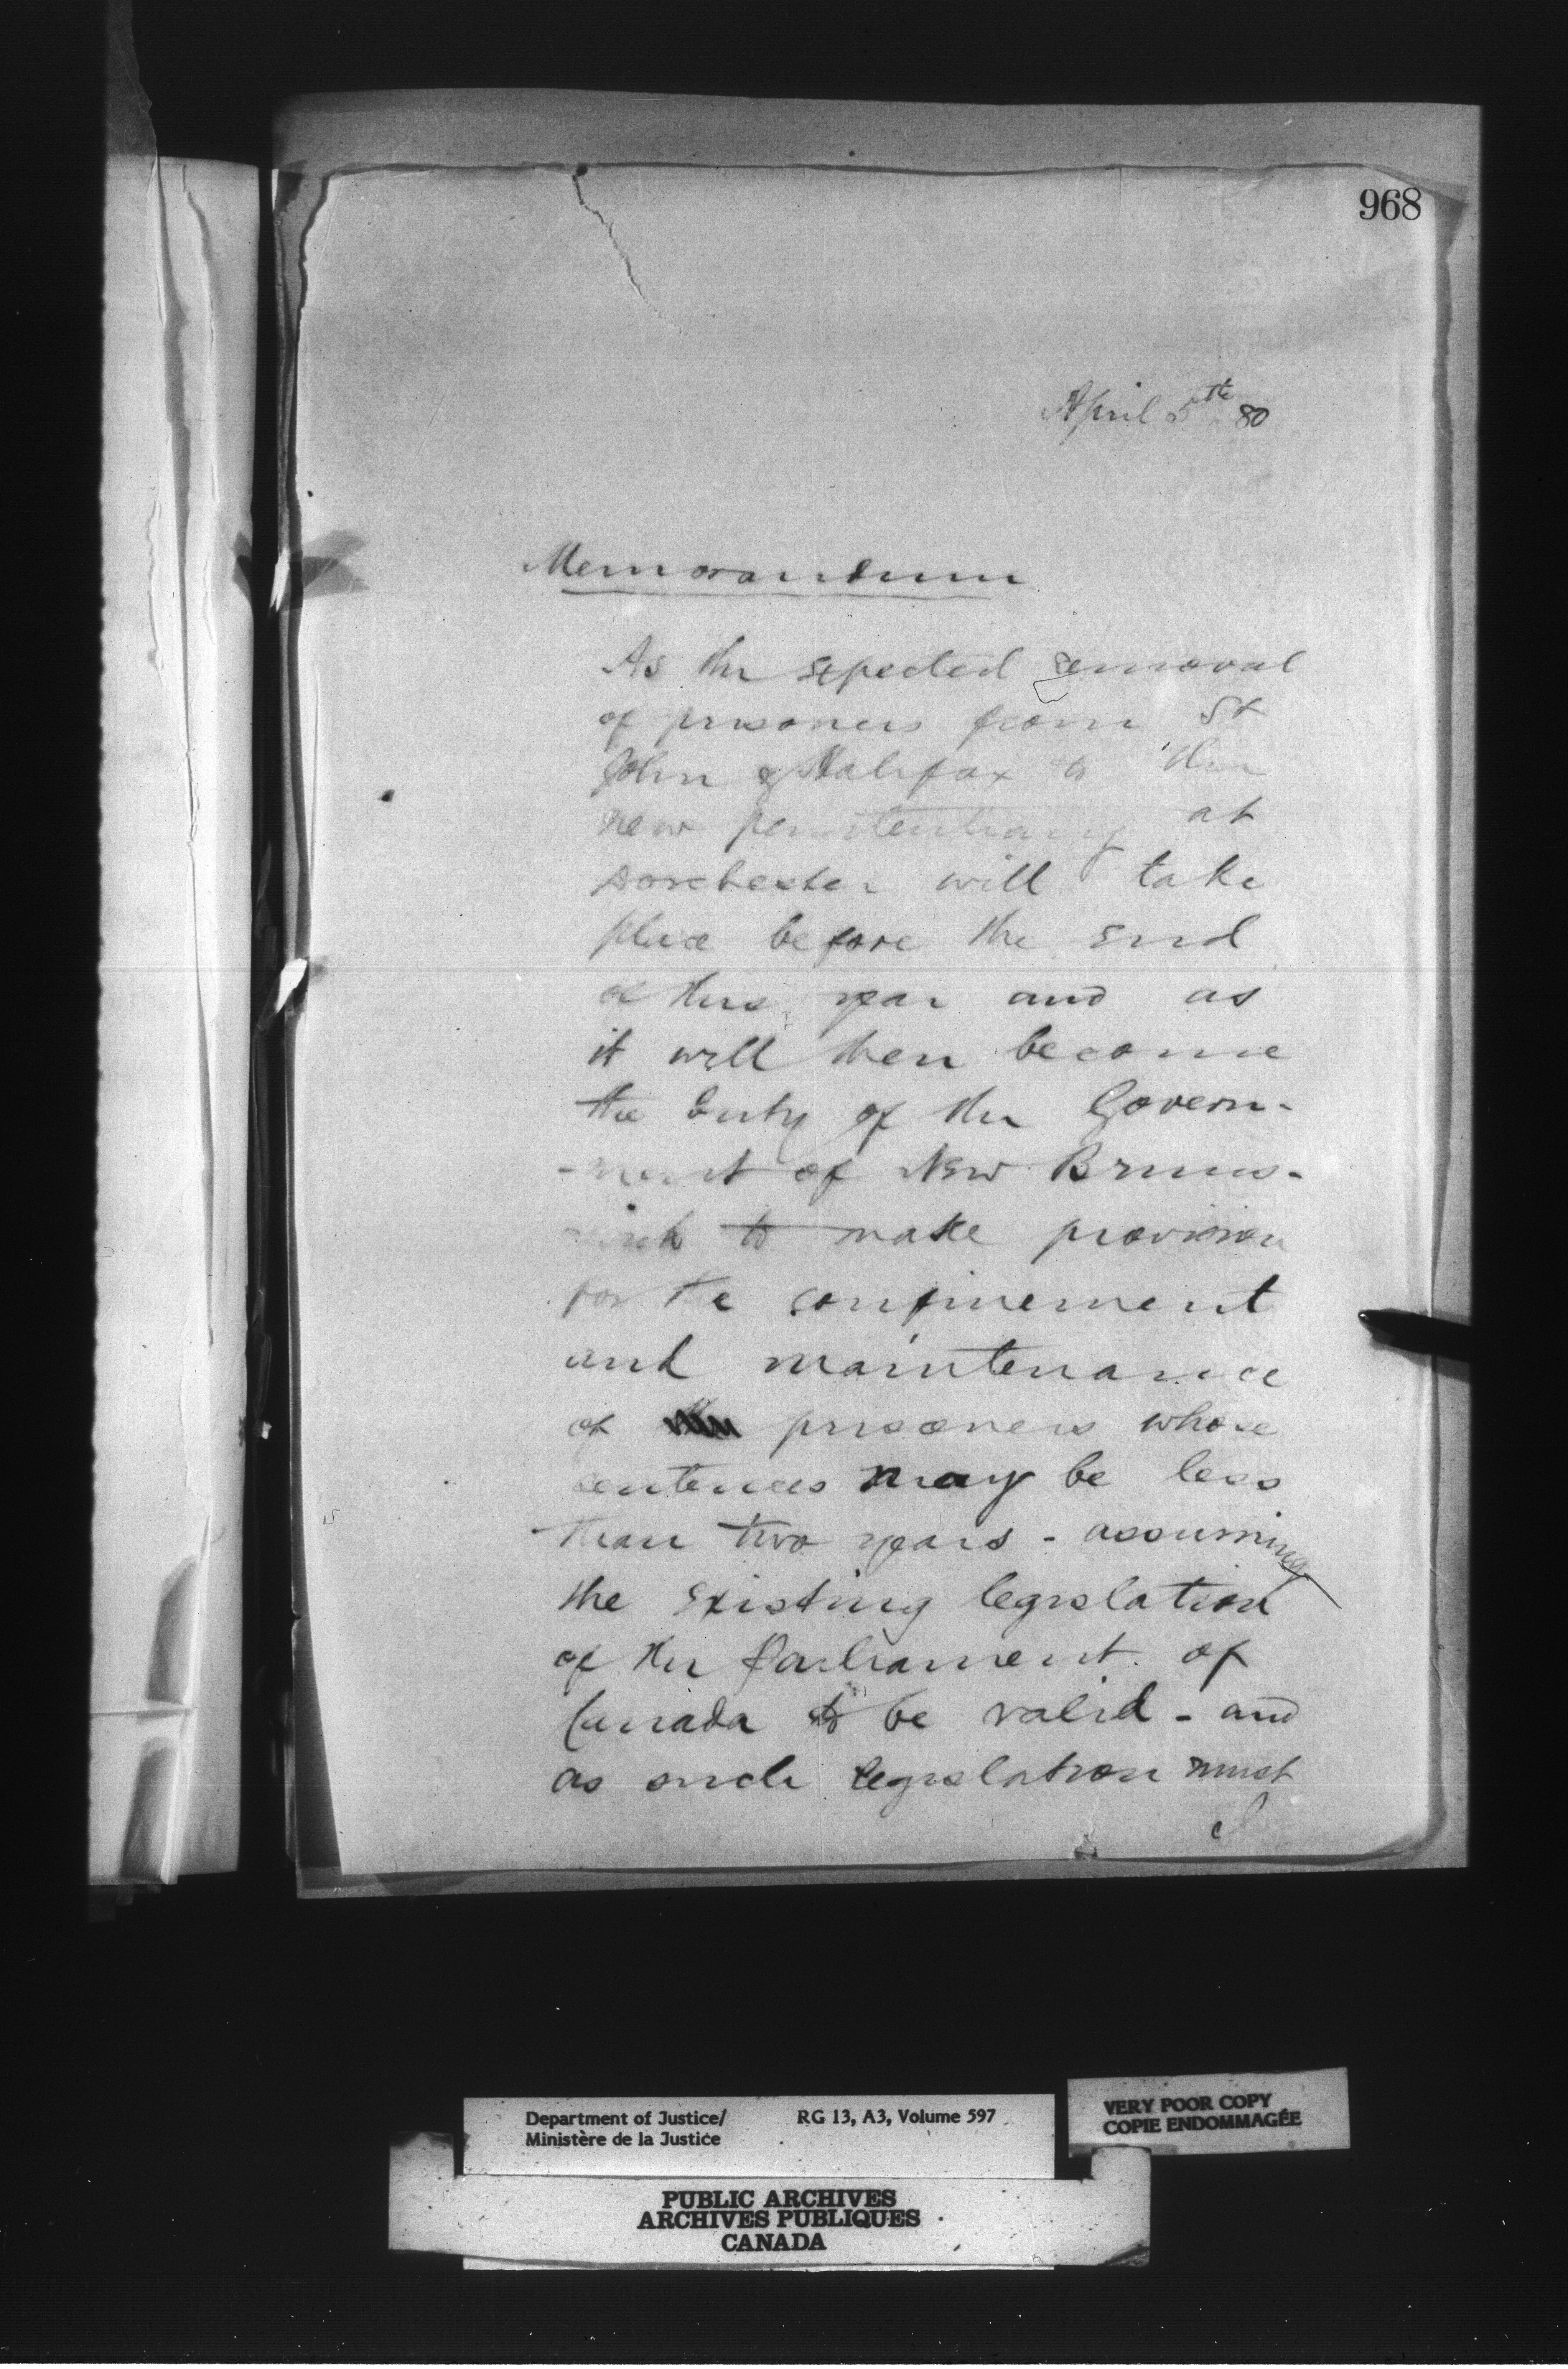 968
April 5th 80
Memorandum
As the expected removal
of prisoners from St
John & Halifax to the
new penitentiary at
Dorchester will take
place before the end
of this year and as
it will then become
the duty of the Govern-
-ment of New Bruns-
wick to make provision
for the confinement
and maintenance
of prisoners whose
sentences may be less
than two years - assuming
the existing legislation
of the Parliament of
Canada to be valid - and
as such legislation must
Department of Justice/
Ministère de la Justice
RG 13, A3, Volume 597
VERY POOR COPY
COPIE ENDOMMAGÉE
PUBLIC ARCHIVES
ARCHIVES PUBLIQUES
CANADA